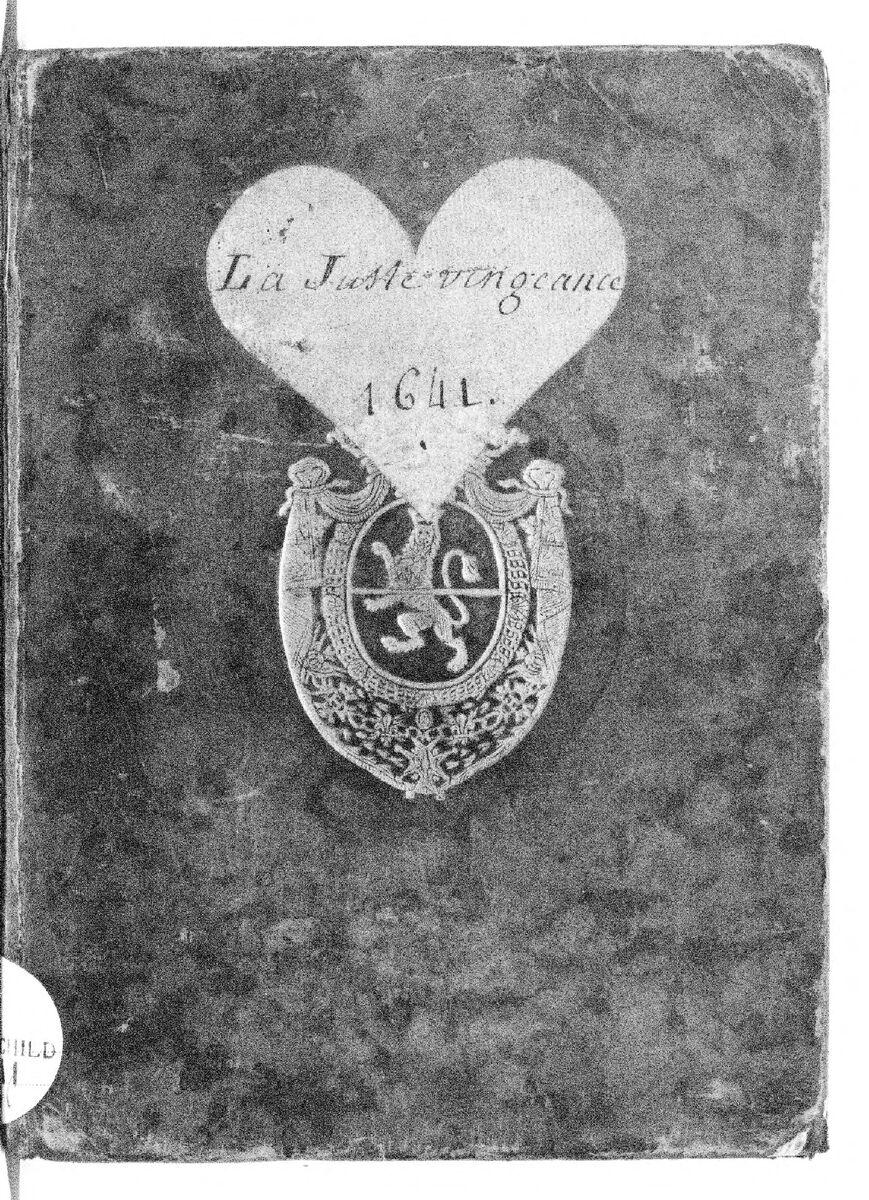 La Juste vengeance
1641.
CHILD